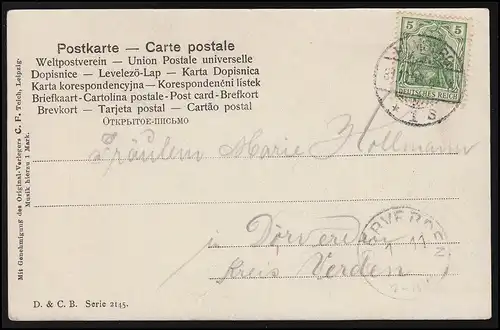 Postkarte – Carte postale
Weltpostverein – Union Postale universelle
Dopisnice – Levelező-Lap – Karta Dopisnica
Karta korespondencyjna – Korespondenční lístek
Briefkaart - Cartolina postale - Post card - Brefkort
Brevkort – Tarjeta postal – Cartão postal
ОТКРЫТОЕ-ПИСЬМО
5 5
DEUTSCHES REICH
* 1 S
Fräulein Marie Hollmann
in Dörverden
Kreis Verden
RVERDEN
11
Mit Genehmigung des Original-Verlegers C. F. Teich, Leipzig.
Musik hierzu 1 Mark.
D. & C. B. Serie 2145.